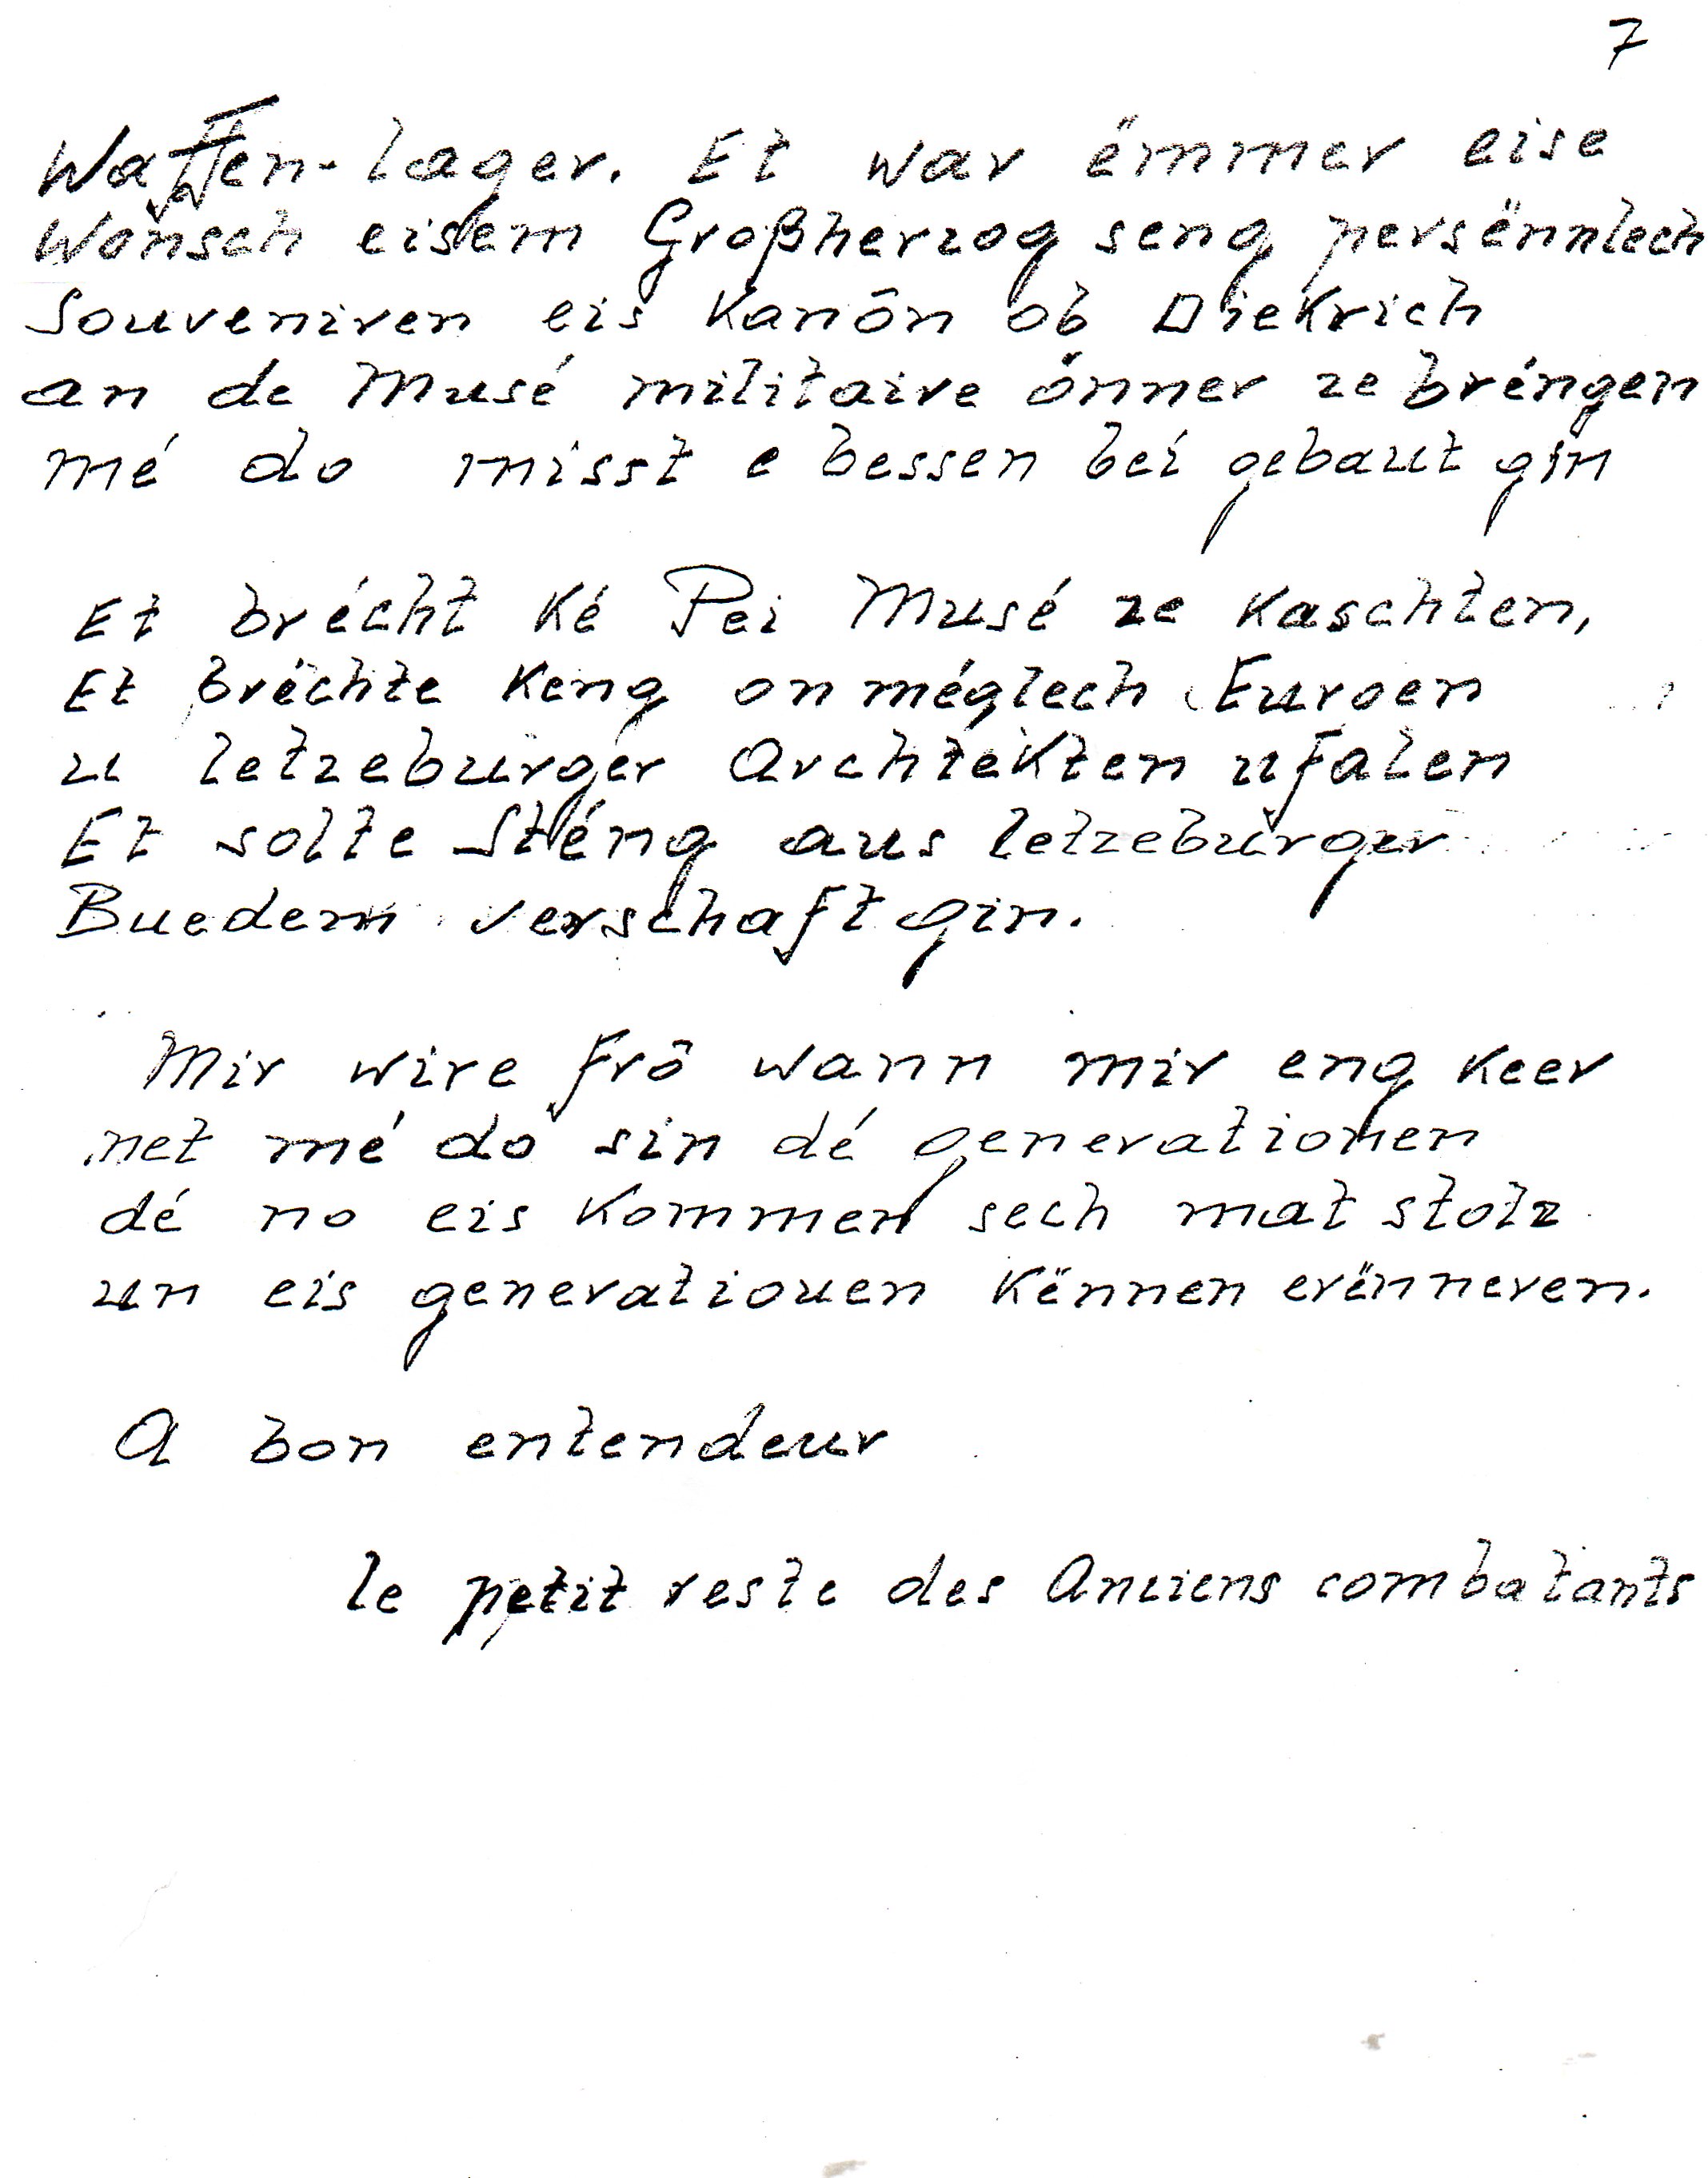 7
Waffen-lager. Et war ëmmer eise
Wonsch eisem Großherzog seng persënnlech
Souveniren eis Kanôn ob Diekrich
an de Musé militaire ónner ze bréngen
mé do misst e bessen bei gebaut gin
Et brécht Ké Pei Musé ze Kaschten,
Et bréchte Keng onméglech Euroen
u letzeburger Archtekten ufalen
Et solte Sténg aus letzeburger
Buedem verschaft gin.
Mir wire frô wann mir eng Keer
net mé do sin dé generationen
dé no eis Kommen sech mat stolz
un eis generatiouen Kënnen erënneren.
A bon entendeur
le petit reste des Anciens combatants